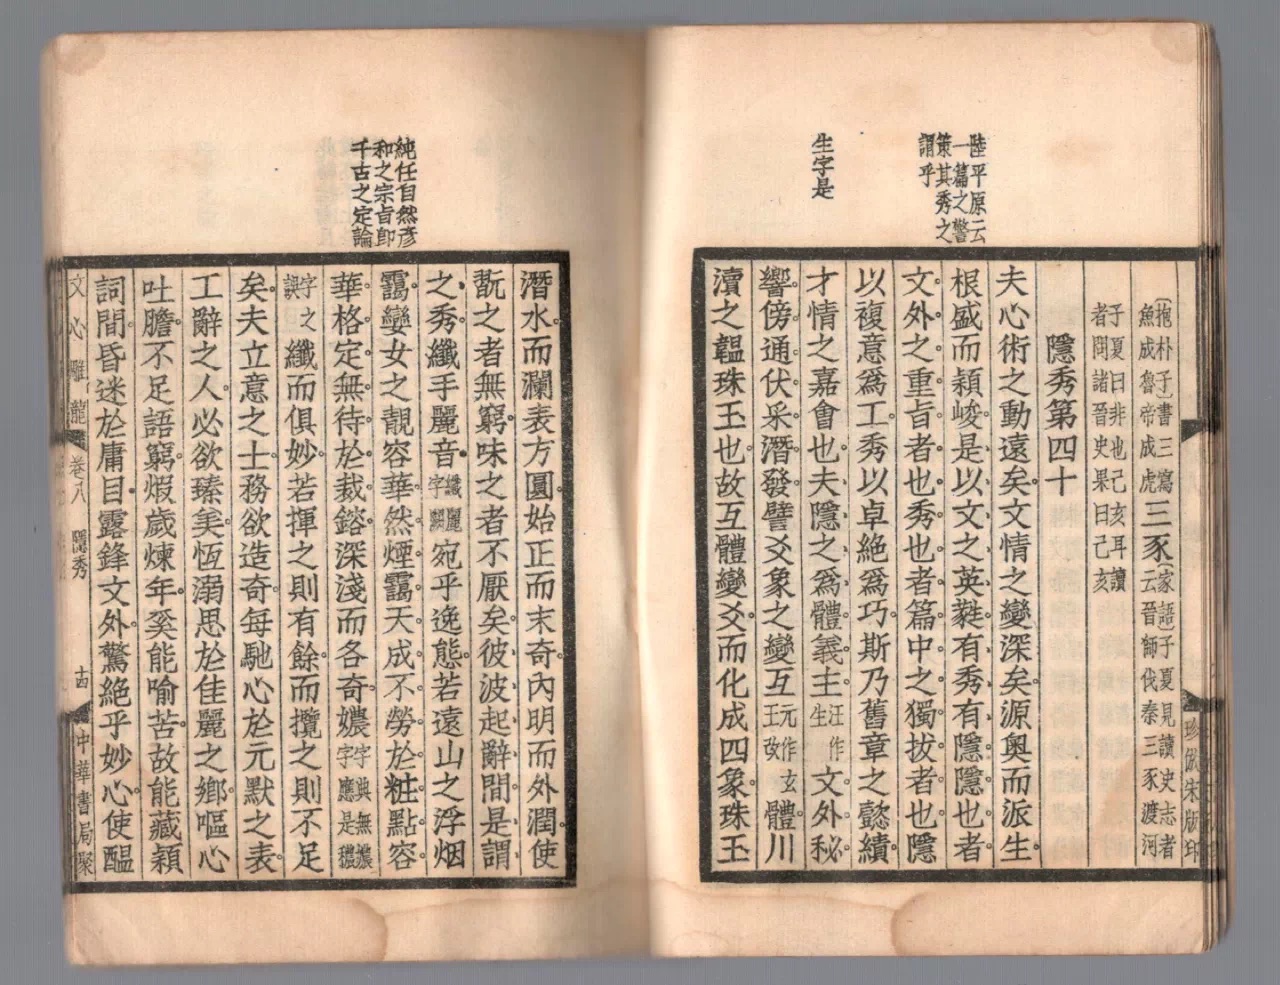 陸平原云
一篇之警
策其秀之
謂乎
生字是
珍倣宋版印
(抱朴子)書三寫
魚成魯帝成虎
三豕
(家語)子夏見讀史志者
云晉師伐秦三豕渡河
子夏曰非也己亥耳讀
者問諸晉史果曰己亥
隱秀第四十
夫心術之動遠矣文情之變深矣源奧而派生
根盛而穎峻是以文之英蕤有秀有隱隱也者
文外之重旨者也秀也者篇中之獨拔者也隱
以複意爲工秀以卓絕爲巧斯乃舊章之懿績
才情之嘉會也夫隱之爲體義主汪作生文外秘
響傍通伏采潛發譬爻象之變互元作玄王改體川
瀆之韞珠玉也故互體變爻而化成四象珠玉
純任自然彥
和之宗旨卽
千古之定論
潛水而瀾表方圓始正而末奇內明而外潤使
翫之者無窮味之者不厭矣彼波起辭間是謂
之秀纖手麗音纖麗字闕宛乎逸態若遠山之浮烟
靄孌女之靚容華然煙靄天成不勞於粧點容
華格定無待於裁鎔深淺而各奇穠字典無穠字應是穠
字之誤纖而俱妙若揮之則有餘而攬之則不足
矣夫立意之士務欲造奇每馳心於元默之表
工辭之人必欲臻美恆溺思於佳麗之鄉嘔心
吐膽不足語窮煅歲煉年奚能喻苦故能藏穎
詞間昏迷於庸目露鋒文外驚絕乎妙心使醞
文心雕龍 卷八 隱秀 十四 中華書局聚